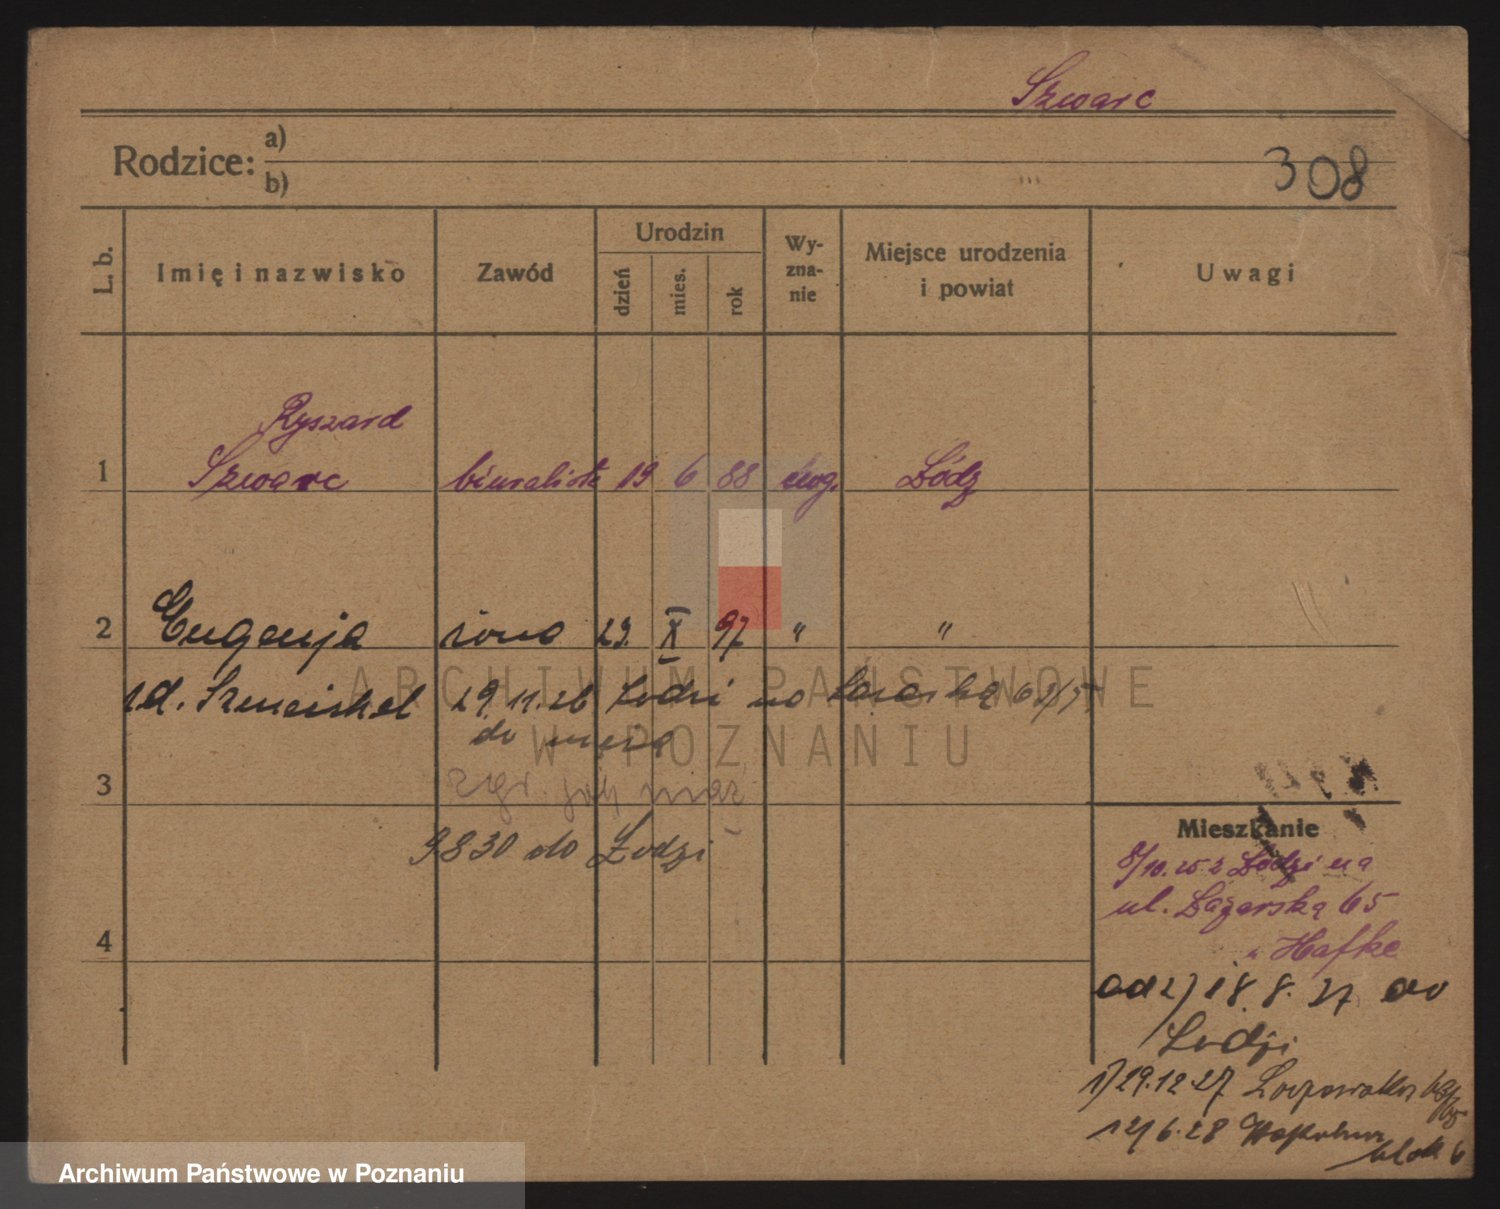 Szwarc
Rodzice: a)
b)
308
L. b.
Imię i nazwisko
Zawód
Urodzin
dzień
mies.
rok
Wy-
zna-
nie
Miejsce urodzenia
i powiat
Uwagi
Ryszard
1 Szwarc biuralista 19 6 88 ewg. Łódź
2 Eugenja żona 29. X 97 " "
29.11.26 Łodzi na
do męża
3
zgł. jej mąż
9830 do Łodzi
4
Mieszkanie
8/10.25 z Łodzi na
ul. Łazarską 65
u Hafke
18.8.27 do
Łodzi
1) 29.12.27
12/6.28
blok 6
ARCHIWUM PAŃSTWOWE
W POZNANIU
Archiwum Państwowe w Poznaniu